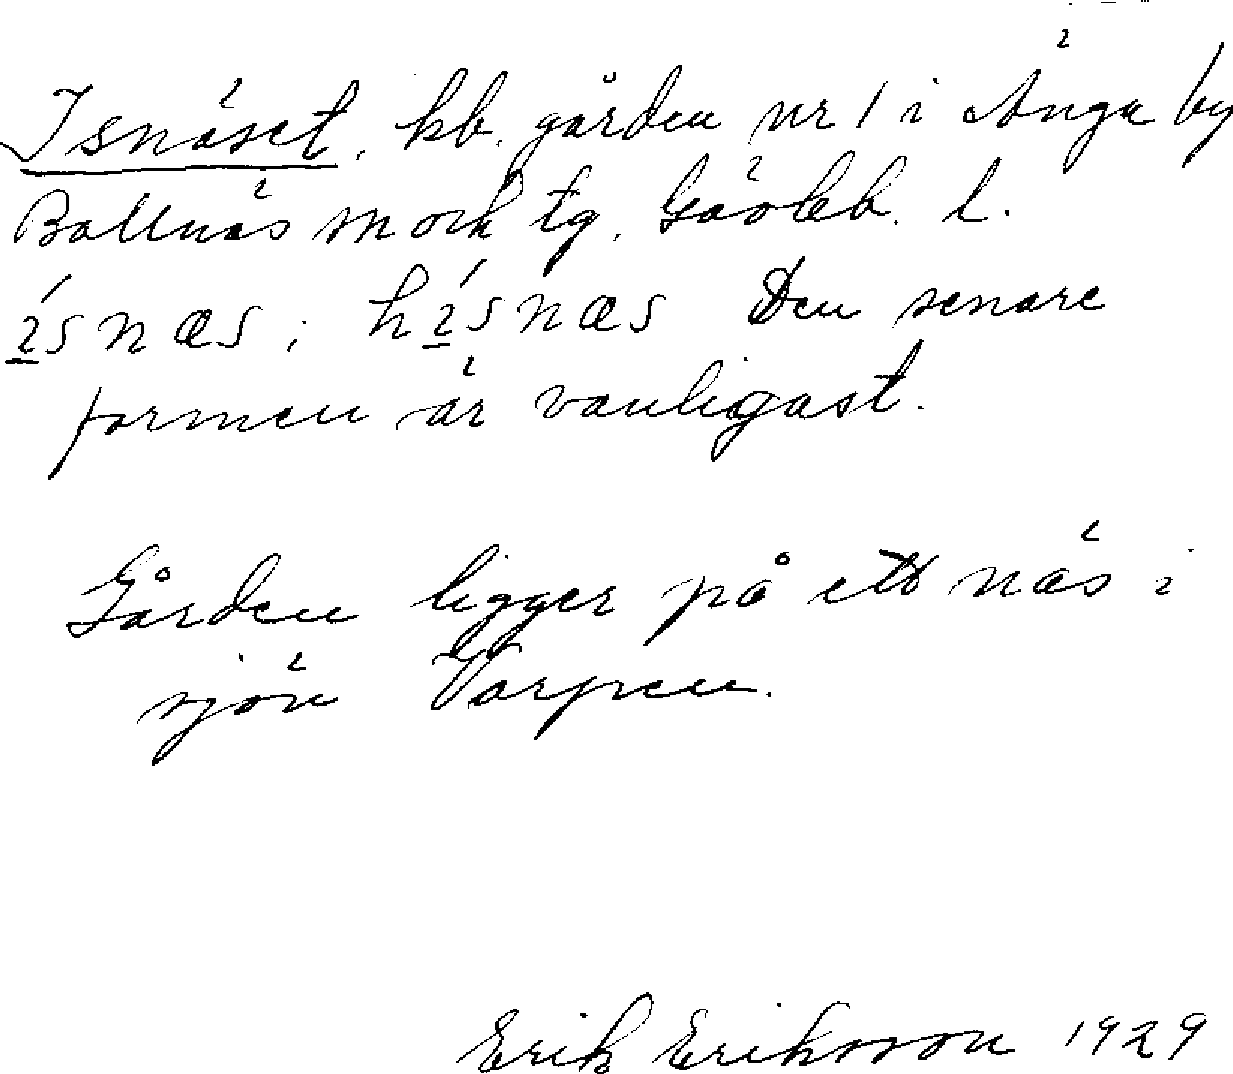 Isnäset, hb. gården nr 1 i Änga by
Bollnäs sn och tg. Gävleb. l.
ísnæs; hísnæs Den senare
formen är vanligast.
Gården ligger på ett näs i
sjön Varpen.
Erik Eriksson 1929